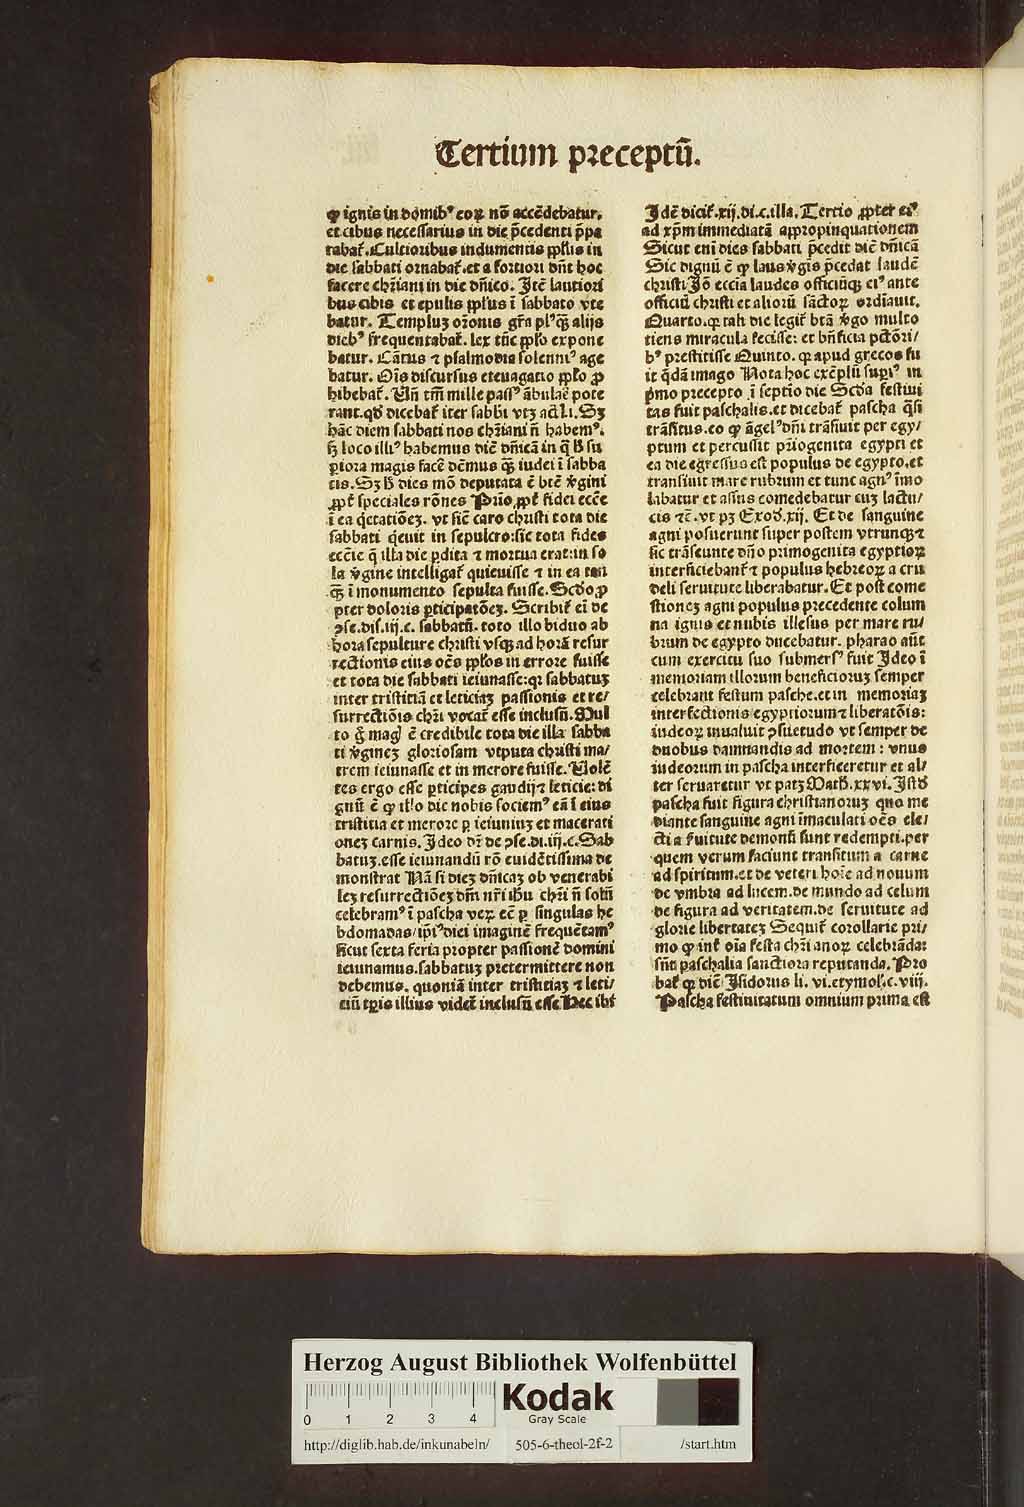 Tertium preceptū.
ꝙ ignis in domibꝰ eoꝝ nō accēdebatur.
et cibus necessarius in die p̄cedenti p̄pa
rabat̄. Cultioribus indumentis ꝓplus in
die sabbati ornabat̄. et a fortiori dn̄t hoc
facere chr̄iani in die dn̄ico. Itē lautiori
bus cibis et epulis ꝓplus ī sabbato vte
batur. Templuꝫ or̄onis gr̄a plꝰ ꝙ̄ alijs
diebꝰ frequentabat̄. lex tūc ꝓplo expone
batur. Cātus ⁊ psalmodia solenniꝰ age
batur. Oīs discursus et euagatio ꝓplo ꝓ
hibebat̄. Un̄ tm̄ mille passꝰ ābulare pote
rant. qd̄ dicebat̄ iter sabbi vtꝫ act̄. i. Sꝫ
hāc diem sabbati nos chr̄iani n̄ habemꝰ.
sꝫ loco illiꝰ habemus diē dn̄icā in q̄ h̄ su
ꝑiora magis facē dēmus ꝙ̄ iudei ī sabba
tis. Sꝫ h̄ dies mō deputata ē btē v̄gini
ꝓpt̄ speciales rōnes Prīo ꝓpt̄ fidei ecc̄e
ī ea q̄etatiōeꝫ. vt sic̄ caro christi tota die
sabbati q̄euit in sepulcro: sic tota fides
ecc̄ie q̄ illa die ꝑdita ⁊ mortua erat: in so
la v̄gine intelligat̄ quieuisse ⁊ in ea tan
ꝙ̄ ī monumento sepulta fuisse. Scd̄o ꝓ
pter doloris ꝑticipatōeꝫ. Scribit̄ eī de
ꝯse. dis. iij. c. sabbatū. toto illo biduo ab
hora sepulture christi vsqꝫ ad horā resur
rectionis eius oēs ꝓplos in errore fuisse
et tota die sabbati ieiunasse: qꝛ sabbatuꝫ
inter tristitiā et leticiaꝫ passionis et re/
surrectiōis chr̄i vocat̄ esse inclusū. Mul
to g̊ magꝭ ē credibile tota die illa sabba
ti v̄gineꝫ gloriosam vtputa christi ma/
trem ieiunasse et in merore fuisse. Uolē
tes ergo esse ꝑticipes gaudij ⁊ leticie: di
gnū ē ꝙ illo die nobis sociemꝰ eā ī eius
tristitia et merore ꝑ ieiuniuꝫ et macerati
oneꝫ carnis. Ideo dꝛ̄ de ꝯse. di. iij. c. Sab
batuꝫ. esse ieiunandū rō euidētissima de
monstrat Nā si dieꝫ dn̄icaꝫ ob venerabi
leꝫ resurrectiōeꝫ dn̄i nr̄i ih̄u chr̄i n̄ solū
celebramꝰ ī pascha veꝝ ec̄ ꝑ singulas he
bdomadas/ ip̄iꝰ diei imaginē frequētamꝰ
sicut sexta feria propter passionē domini
ieiunamus. sabbatuꝫ pretermittere non
debemus. quoniā inter tristitiaꝫ ⁊ leti/
ciā tꝑis illius videt̄ inclusū esse Hec ibi
Idē dicit̄. xij. di. c. illa. Tertio ꝓpter eiꝰ
ad xp̄m immediatā appropinquationem
Sicut eni dies sabbati p̄cedit diē dn̄icā
Sic dignū ē ꝙ laus v̄gis p̄cedat laudē
christi Iō eccīa laudes officiūqꝫ eiꝰ ante
officiū christi et alioꝝ sāctoꝝ ordīauit.
Quarto. ꝙ tali die legit̄ btā v̄go multo
tiens miracula fecisse: et bn̄ficia pctōri/
bꝰ prestitisse Quinto. ꝙ apud grecos fu
it q̄dā imago Nota hoc exēplū supiꝰ in
p̄mo precepto ī septīo die Scd̄a festiui
tas fuit paschalis. et dicebat̄ pascha q̄si
trāsitus. eo ꝙ āgelꝰ dn̄i trāsiuit per egy/
ptum et percussit pr̄iogenita egypti et
ea die egressus est populus de egypto. et
transiuit mare rubrum et tunc agnꝰ īmo
labatur et assus comedebatur cuꝫ lactu/
cis ⁊c̄. vt pꝫ Exod̄. xij. Et de sanguine
agni posuerunt super postem vtrunqꝫ ⁊
sic trāseunte dn̄o primogenita egyptioꝝ
interficiebant̄ ⁊ populus hebreoꝝ a cru
deli seruitute liberabatur. Et post come
stioneꝫ agni populus precedente colum
na ignis et nubis illesus per mare ru/
brum de egypto ducebatur. pharao aūt
cum exercitu suo submersꝰ fuit Ideo ī
memoriam illorum beneficioruꝫ semper
celebrant festum pasche. et in memoriaꝫ
interfectionis egyptiorum ⁊ liberatōis:
iudeoꝝ inualuit ꝯsuetudo vt semper de
duobus damnandis ad mortem: vnus
iudeorum in pascha interficeretur et al/
ter seruaretur vt patꝫ Math̄. xxvi. Istd̄
pascha fuit figura christianoruꝫ quo me
diante sanguine agni īmaculati oēs ele/
cti a ẜuitute demonū sunt redempti. per
quem verum faciunt transitum a carne
ad spiritum. et de veteri hoīe ad nouum
de vmbra ad lucem. de mundo ad celum
de figura ad veritatem. de seruitute ad
glorie libertateꝫ Sequit̄ corollarie pri/
mo ꝙ int̄ oīa festa chr̄ianoꝝ celebrāda:
sūt paschalia sanctiora reputanda. Pro
bat̄ ꝙ dicē Isidorus li. vi. etymoł. c. viij.
Pascha festiuitatum omnium prima est
Herzog August Bibliothek Wolfenbüttel
0 1 2 3 4 Kodak
Gray Scale
http://diglib.hab.de/inkunabeln/ 505-6-theol-2f-2 /start.htm